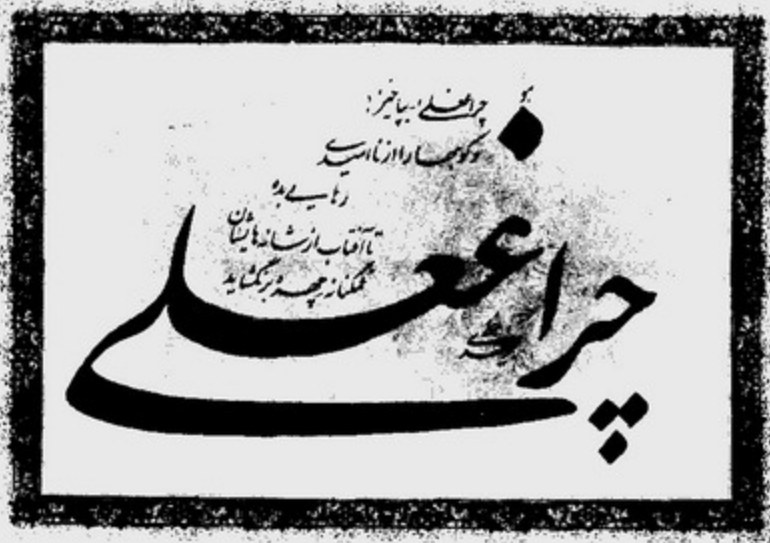 هو
چراغعلی! بپاخیز!
و کوهها را از ناامیدی
رهایی بده
تا آفتاب از شانه‌هایشان
غمگنانه چهره برنگشاید
چراغعلی